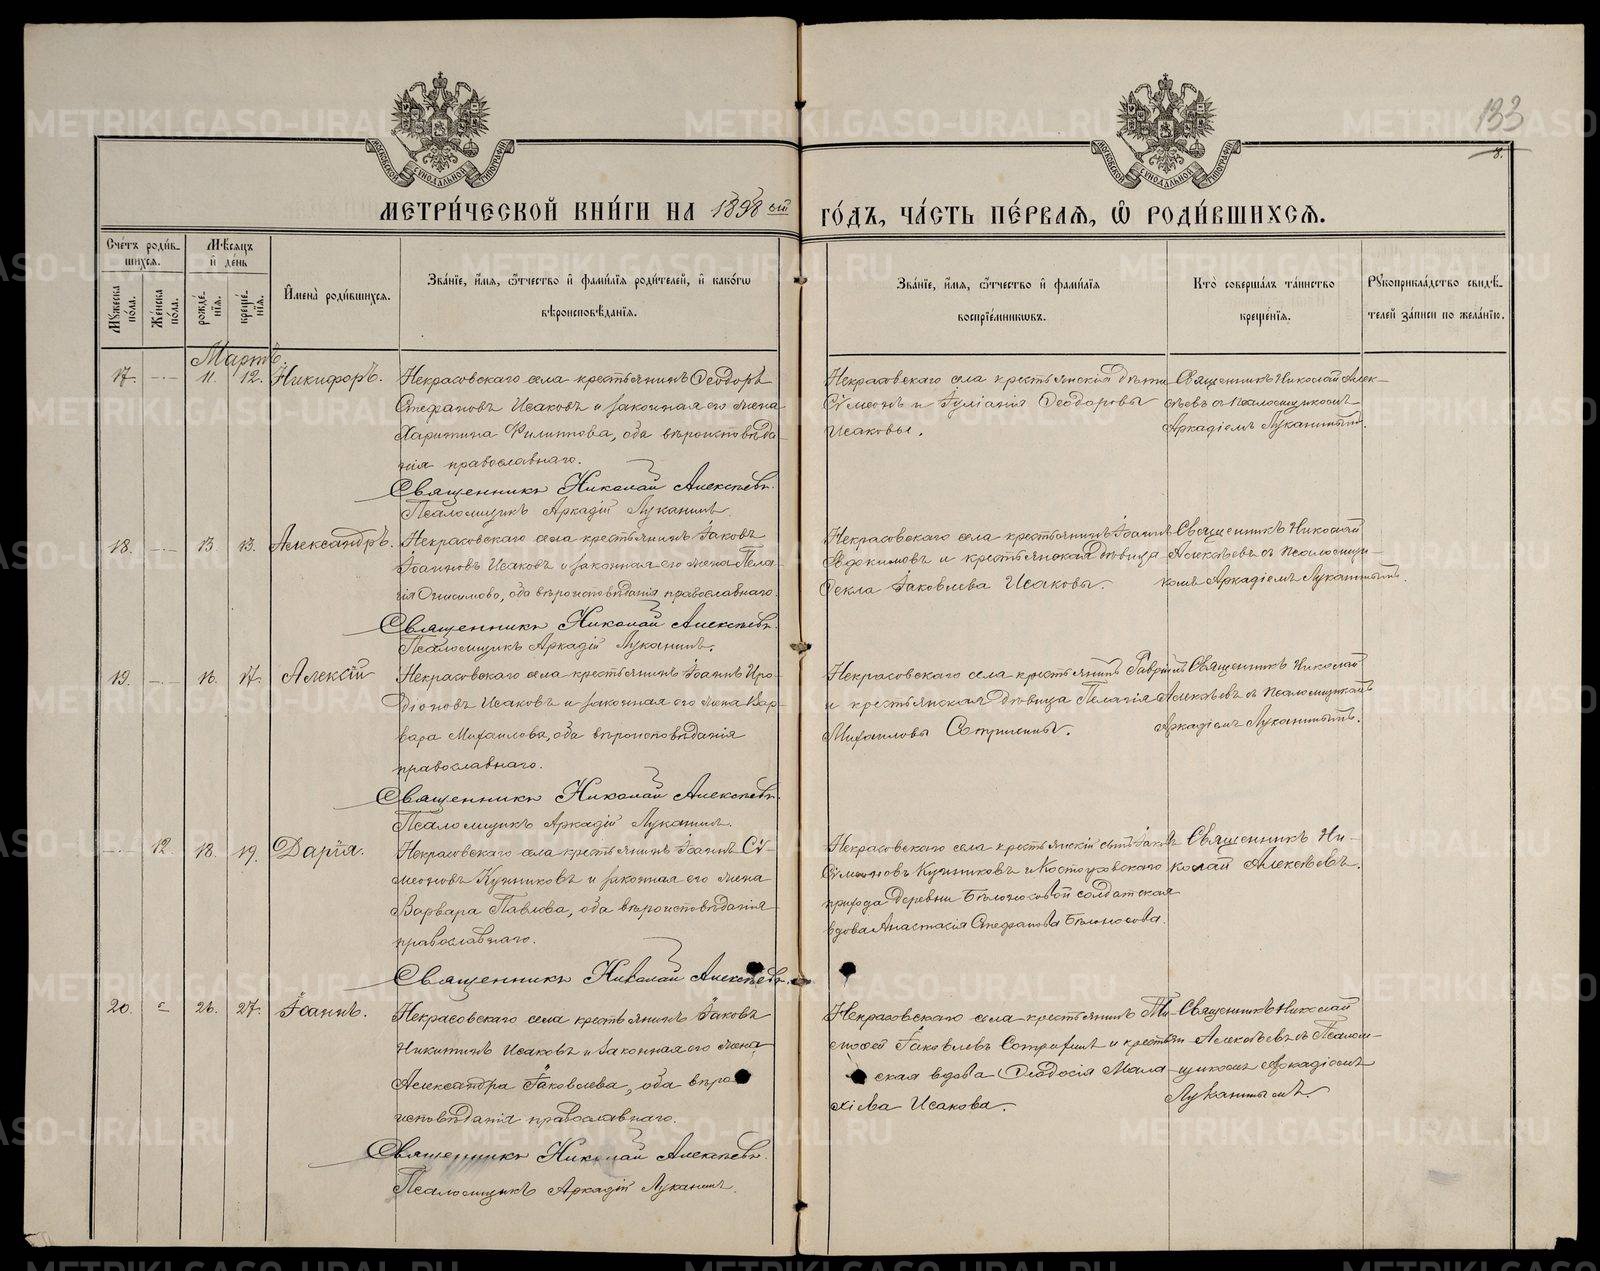 133
8.
МОСКОВСКОЙ СѴНОДАЛЬНОЙ ТИПОГРАФІИ
МОСКОВСКОЙ СѴНОДАЛЬНОЙ ТИПОГРАФІИ
МЕТРИ́ЧЕСКОЙ КНИ́ГИ НА 1898 ой ГО́ДЪ, ЧА́СТЬ ПЕ́РВАЯ, Ѡ РОДИ́ВШИХСЯ.
Сче́тъ роди́вшихся.
Мѣ́сяцъ и҆ де́нь
Му́жеска по́ла.
Же́нска по́ла.
рожде́нїя.
креще́нїя.
И҆мена̀ роди́вшихся.
Зва́нїе, и҆́мя, ѻ҆́тчество и҆ фами́лїя роди́телей, и҆ како́гѡ
вѣроисповѣ́данїя.
Зва́нїе, и҆́мя, ѻ҆́тчество и҆ фами́лїя
воспрїе́мникѡвъ.
Кто̀ соверша́лъ та́инство
креще́нїя.
Рꙋкоприкла́дство свидѣ́-
телей за́писи по жела́нїю.
Мартъ.
17. 11. 12. Никифоръ.
Некрасовскаго села крестьянинъ Ѳеодоръ
Стефановъ Исаковъ и законная его жена
Харитина Филиппова, оба вѣроисповѣда-
нія православнаго.
Священникъ Николай Алексѣевъ.
Псаломщикъ Аркадій Луканинъ.
Некрасовскаго села крестьянскія дѣти
Сѵмеонъ и Іуліанія Ѳеодоровы
Исаковы.
Священникъ Николай Алек-
сѣевъ съ псаломщикомъ
Аркадіемъ Луканинымъ.
18. 13. 13. Александръ.
Некрасовскаго села крестьянинъ Іаковъ
Іоанновъ Исаковъ и законная его жена Пела-
гія Онисимова, оба вѣроисповѣданія православнаго.
Священникъ Николай Алексѣевъ.
Псаломщикъ Аркадій Луканинъ.
Некрасовскаго села крестьянинъ Іоаннъ
Евдокимовъ и крестьянская дѣвица
Ѳекла Іаковлева Исаковы.
Священникъ Николай
Алексѣевъ съ псаломщи-
комъ Аркадіемъ Луканинымъ.
19. 16. 17. Алексій
Некрасовскаго села крестьянинъ Іоаннъ Иро-
діоновъ Исаковъ и законная его жена Вар-
вара Михаилова, оба вѣроисповѣданія
православнаго.
Священникъ Николай Алексѣевъ.
Псаломщикъ Аркадій Луканинъ.
Некрасовскаго села крестьянинъ Гавріилъ
и крестьянская дѣвица Пелагія
Михаиловы
Священникъ Николай
Алексѣевъ съ псаломщикомъ
Аркадіемъ Луканинымъ.
12. 18. 19. Дарія.
Некрасовскаго села крестьянинъ Іоаннъ Сѵ-
меоновъ и законная его жена
Варвара Павлова, оба вѣроисповѣданія
православнаго.
Священникъ Николай Алексѣевъ.
Некрасовскаго села крестьянскій сынъ
Сѵмеоновъ и
прихода деревни солдатская
вдова Анастасія Стефанова Бѣлоносова.
Священникъ Ни-
колай Алексѣевъ.
20. 26. 27. Іоаннъ.
Некрасовскаго села крестьянинъ Іаковъ
Никитинъ Исаковъ и законная его жена
Александра Іаковлева, оба вѣро
исповѣданія православнаго.
Священникъ Николай Алексѣевъ.
Псаломщикъ Аркадій Луканинъ.
Некрасовскаго села крестьянинъ Ти-
моѳей Іаковлевъ и крестьян
ская вдова Ѳеодосія Мала-
хіева Исакова.
Священникъ Николай
Алексѣевъ съ псалом-
щикомъ Аркадіемъ
Луканинымъ.
METRIKI.GASO-URAL.RU